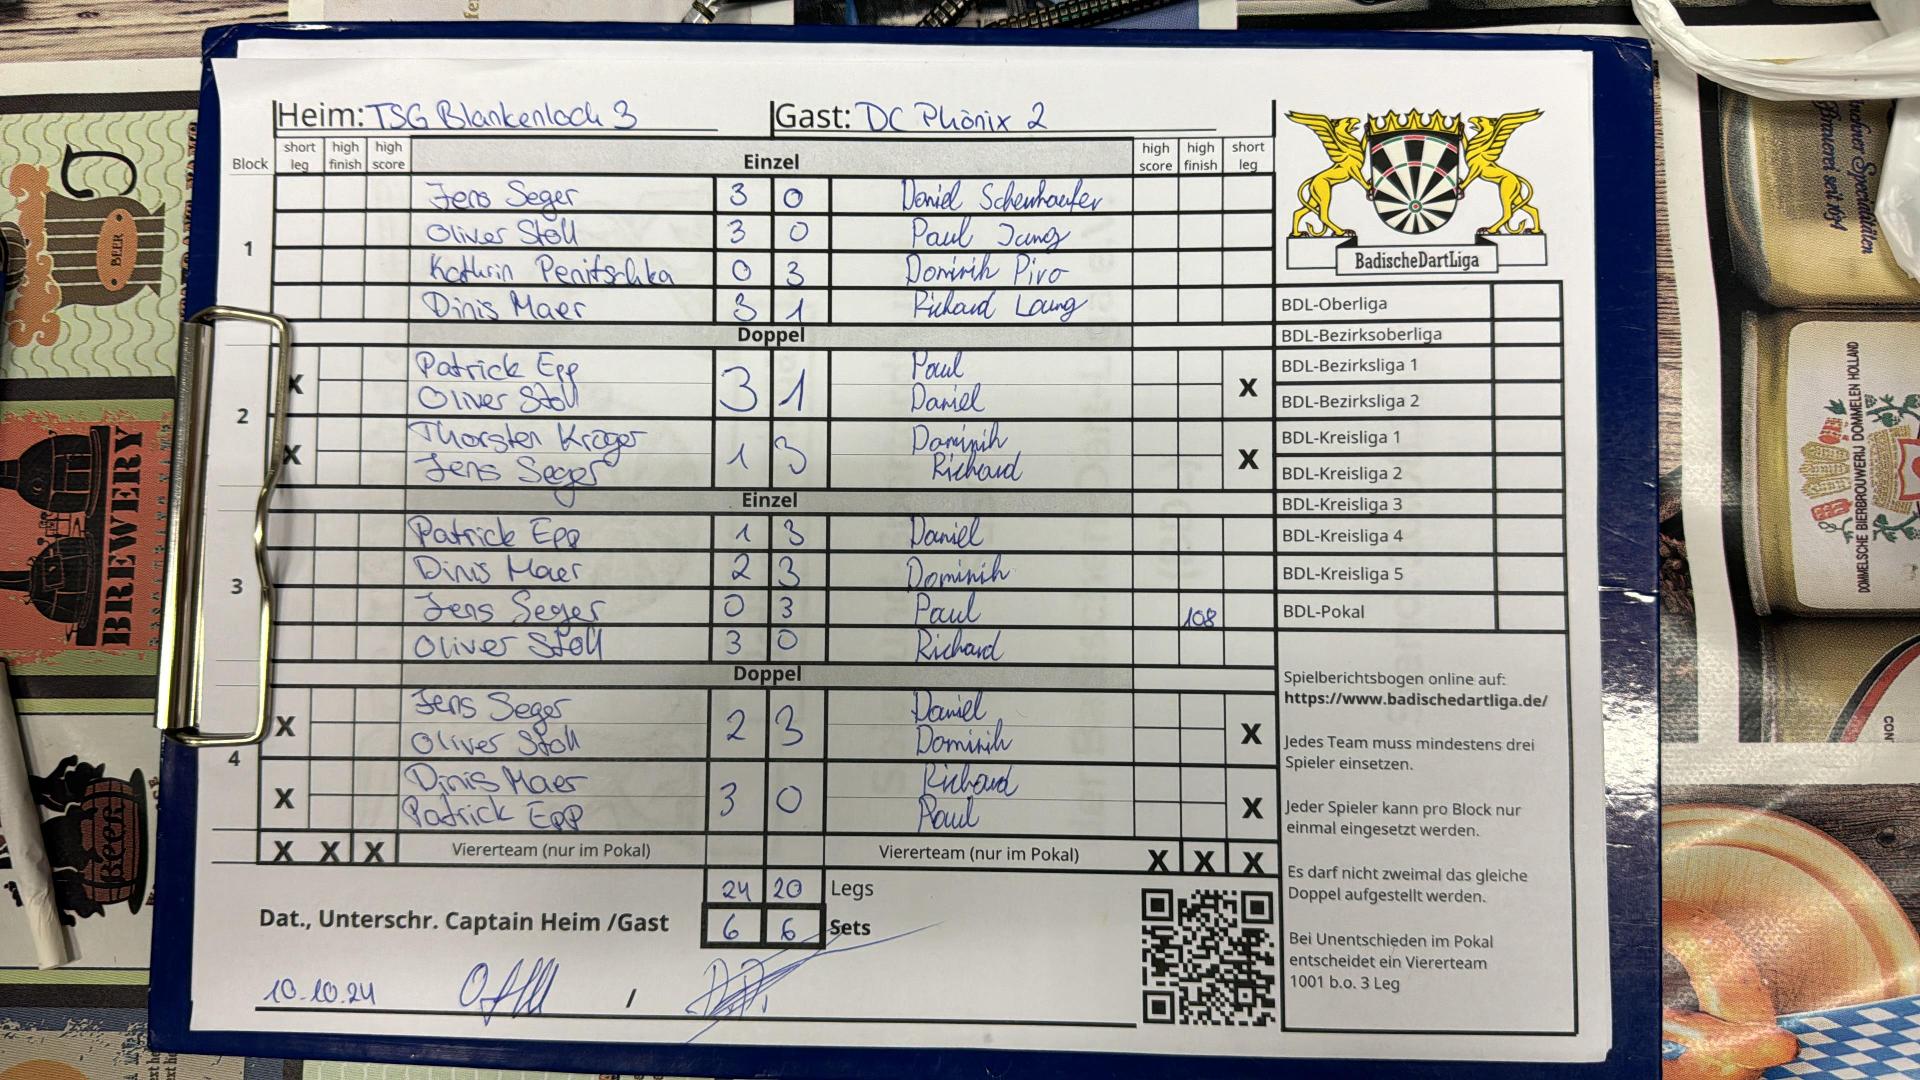 Heim: TSG Blankenloch 3 Gast: DC Phönix 2
Block short leg high finish high score Einzel high score high finish short leg
1
Jens Seger 3 0 Daniel Schenhaefer
Oliver Stoll 3 0 Paul Jung
Kathrin Penitschka 0 3 Dominik Piro
Dinis Maer 3 1 Richard Laung
Doppel
2
X Patrick Epp 3 1 Paul X
Oliver Stoll Daniel
X Thorsten Kröger 1 3 Dominik X
Jens Seger Richard
Einzel
3
Patrick Epp 1 3 Daniel
Dinis Maer 2 3 Dominik
Jens Seger 0 3 Paul 108
Oliver Stoll 3 0 Richard
Doppel
4
X Jens Seger 2 3 Daniel X
Oliver Stoll Dominik
X Dinis Maer 3 0 Richard X
Patrick Epp Paul
X X X Viererteam (nur im Pokal) Viererteam (nur im Pokal) X X X
24 20 Legs
Dat., Unterschr. Captain Heim /Gast 6 6 Sets
10.10.24 /
BadischeDartLiga
BDL-Oberliga
BDL-Bezirksoberliga
BDL-Bezirksliga 1
BDL-Bezirksliga 2
BDL-Kreisliga 1
BDL-Kreisliga 2
BDL-Kreisliga 3
BDL-Kreisliga 4
BDL-Kreisliga 5
BDL-Pokal
Spielberichtsbogen online auf:
https://www.badischedartliga.de/
Jedes Team muss mindestens drei
Spieler einsetzen.
Jeder Spieler kann pro Block nur
einmal eingesetzt werden.
Es darf nicht zweimal das gleiche
Doppel aufgestellt werden.
Bei Unentschieden im Pokal
entscheidet ein Viererteam
1001 b.o. 3 Leg
BEER
BREWERY
BEER
DOMMELSCHE BIERBROUWERIJ DOMMELEN HOLLAND
Brauerei seit 1694